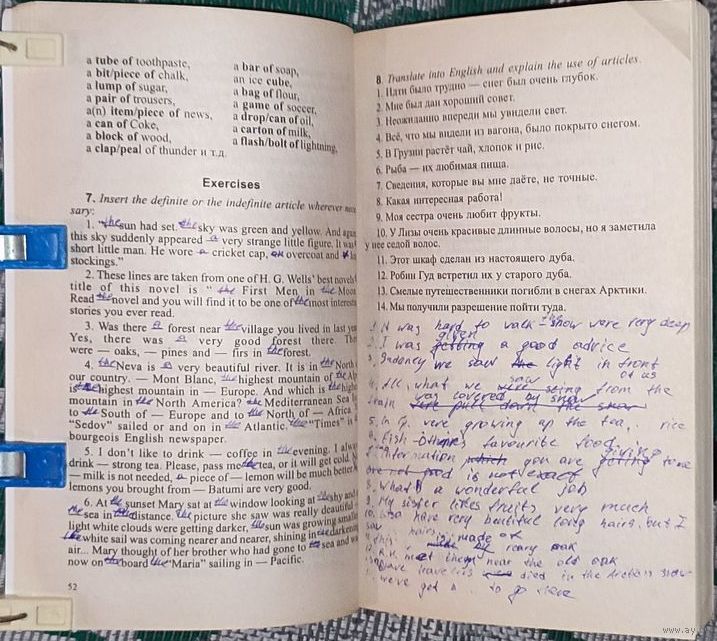 a tube of toothpaste,
a bit/piece of chalk,
a lump of sugar,
a pair of trousers,
a(n) item/piece of news,
a can of Coke,
a block of wood,
a clap/peal of thunder и т.д.
a bar of soap,
an ice cube,
a bag of flour,
a game of soccer,
a drop/can of oil,
a carton of milk,
a flash/bolt of lightning,
Exercises
7. Insert the definite or the indefinite article wherever neces
sary:
1. "the sun had set. the sky was green and yellow. And again
this sky suddenly appeared a very strange little figure. It was
short little man. He wore a cricket cap, an overcoat and
stockings."
2. These lines are taken from one of H. G. Wells' best novels
title of this novel is " the First Men in the Moon
Read the novel and you will find it to be one of the most interest
stories you ever read.
3. Was there a forest near the village you lived in last year
Yes, there was a very good forest there. The
were — oaks, — pines and — firs in the forest.
4. the Neva is a very beautiful river. It is in the North
our country. — Mont Blanc, the highest mountain of the Al
is the highest mountain in — Europe. And which is the highe
mountain in the North America? the Mediterranean Sea
to the South of — Europe and to the North of — Africa
"Sedov" sailed or and on in the Atlantic. the "Times" is
bourgeois English newspaper.
5. I don't like to drink — coffee in the evening. I alwa
drink — strong tea. Please, pass me the tea, or it will get cold.
— milk is not needed, a piece of — lemon will be much better
lemons you brought from — Batumi are very good.
6. At the sunset Mary sat at the window looking at the sky and
the sea in the distance. the picture she saw was really beautiful
light white clouds were getting darker, the sun was growing smalle
the white sail was coming nearer and nearer, shining in the darkening
air... Mary thought of her brother who had gone to the sea and w
now on the board the "Maria" sailing in — Pacific.
52
8. Translate into English and explain the use of articles.
1. Идти было трудно — снег был очень глубок.
2. Мне был дан хороший совет.
3. Неожиданно впереди мы увидели свет.
4. Всё, что мы видели из вагона, было покрыто снегом.
5. В Грузии растёт чай, хлопок и рис.
6. Рыба — их любимая пища.
7. Сведения, которые вы мне даёте, не точные.
8. Какая интересная работа!
9. Моя сестра очень любит фрукты.
10. У Лизы очень красивые длинные волосы, но я заметила
у нее седой волос.
11. Этот шкаф сделан из настоящего дуба.
12. Робин Гуд встретил их у старого дуба.
13. Смелые путешественники погибли в снегах Арктики.
14. Мы получили разрешение пойти туда.
1. It was hard to walk - the snow were very deep
2. I was given a good advice
3. we saw the light in front
of us
4. All, what we saw from the
train was covered by snow
5. in G. were growing up the tea, rice
6. Fish favourite food
7. Information you are giving to me
is not exact
8. What a wonderful job
9. My sister likes fruits very much
10. Lisa have very beautiful long hairs, but I
saw hairs
11. this is made of
oak
12. R.H. met them near the old oak
13. died in the Arctic snow
14. we've got a to go
www.ay